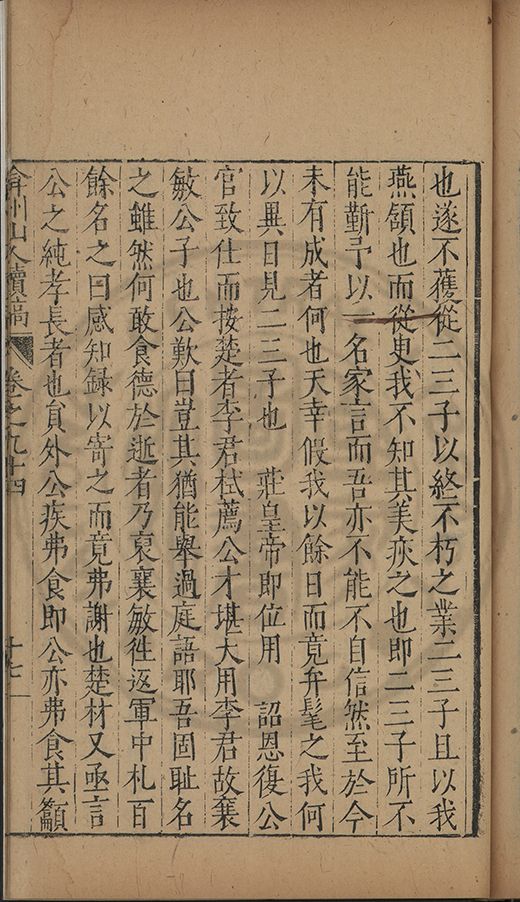 也遂不獲從二三子以終不朽之業二三子且以我
燕頷也而從臾我不知其美疢之也即二三子所不
能靳予以一名家言而吾亦不能不自信然至於今
未有成者何也天幸假我以餘日而竟弁髦之我何
以異日見二三子也　莊皇帝即位用　詔恩復公
官致仕而按楚者李君栻薦公才堪大用李君故襄
敏公子也公歎曰豈其猶能舉過庭語耶吾固恥名
之雖然何敢食德於逝者乃裒襄敏徃返軍中札百
餘名之曰感知録以寄之而竟弗謝也楚材又亟言
公之純孝長者也貟外公疾弗食即公亦弗食其籲
弇州山人續稿　卷之九十四　十七